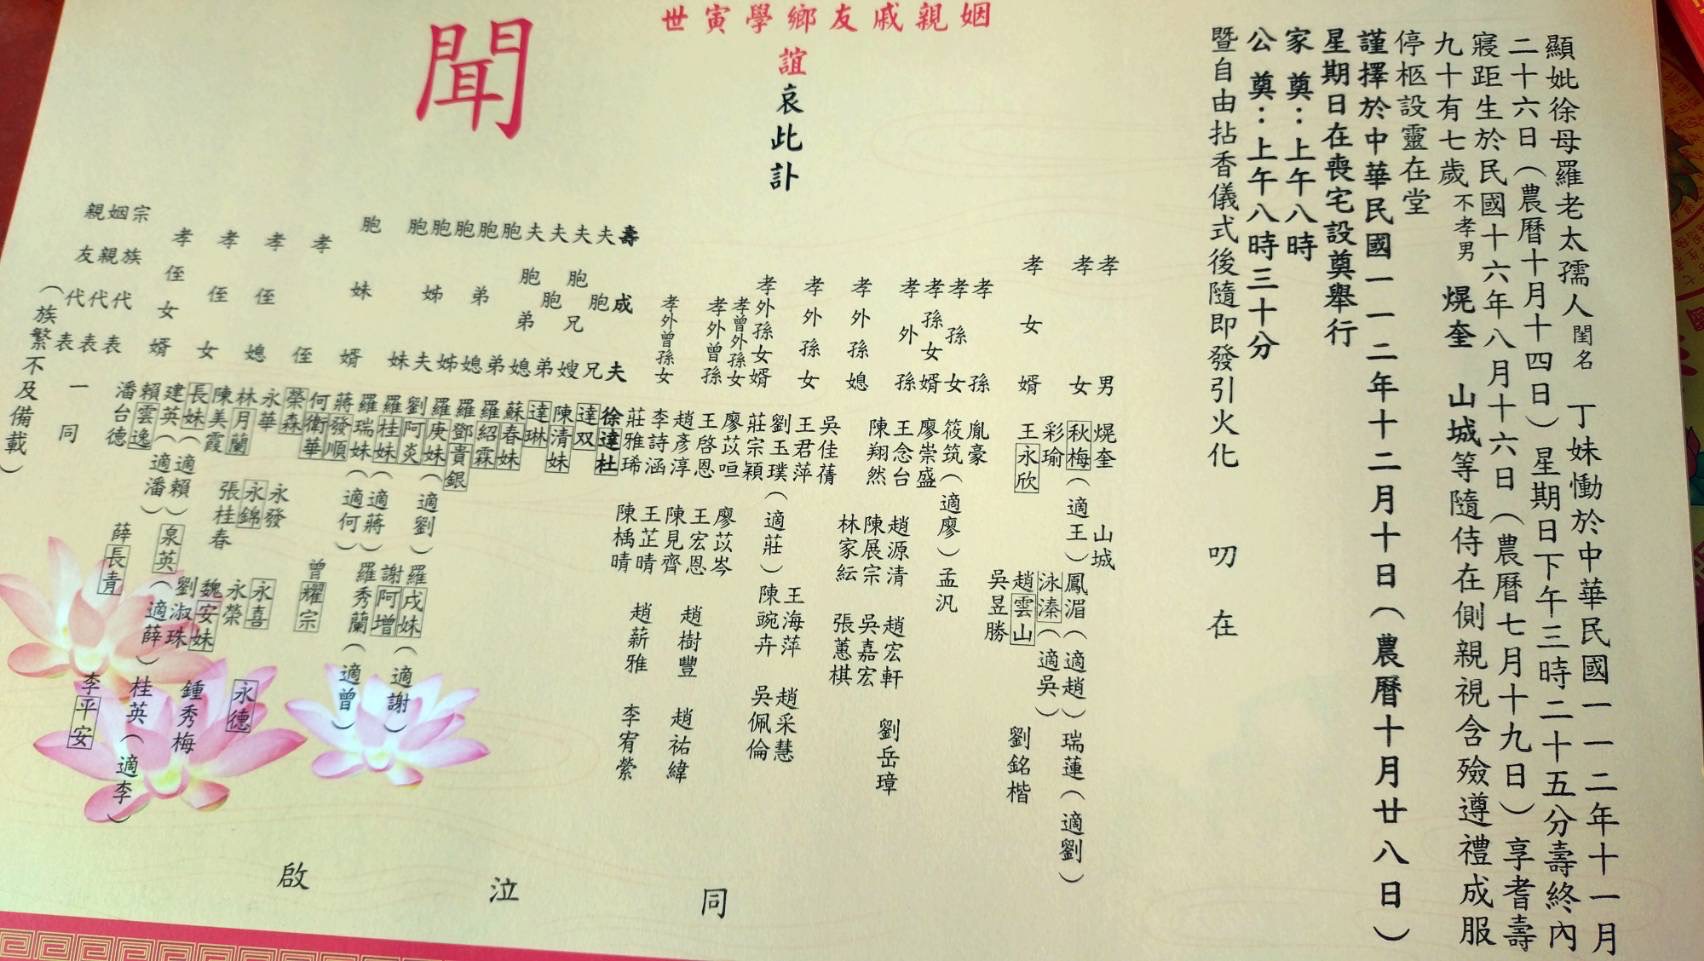 顯妣徐母羅老太孺人閨名丁妹慟於中華民國一一二年十一月
二十六日（農曆十月十四日）星期日下午三時二十五分壽終內
寢距生於民國十六年八月十六日（農曆七月十九日）享耆壽
九十有七歲不孝男焜奎 山城等隨侍在側親視含殮遵禮成服
停柩設靈在堂
謹擇於中華民國一一二年十二月十日（農曆十月廿八日）
星期日在喪宅設奠舉行
家 奠：上午八時
公 奠：上午八時三十分
暨自由拈香儀式後隨即發引火化 叨 在
姻親戚友鄉學寅世
誼
哀此訃
聞
孝男 焜奎 山城
孝女 秋梅（適王）鳳湄（適趙）瑞蓮（適劉）
彩瑜 泳溱（適吳）
孝女婿 王永欣 趙雲山 劉銘楷
吳昱勝
孝孫 胤豪
孝孫女 筱筑（適廖）孟汎
孝孫女婿 廖崇盛
孝外孫 王念台 趙源清 趙宏軒 劉岳璋
陳翔然 陳展宗 吳嘉宏
孝外孫媳 林家紜 張蕙棋
孝外孫女 吳佳蒨 王海萍 趙采慧
王君萍 陳琬卉 吳佩倫
劉玉璞（適莊）
孝外孫女婿 莊宗穎
孝曾外孫女 廖苡喧 廖苡岑
孝外曾孫 王啓恩 王宏恩 趙樹豐 趙祐緯
趙彥淳 陳見齊
孝外曾孫女 李詩涵 王芷晴 趙薪雅 李宥縈
莊雅琋 陳楀晴
壽成夫 徐達杜
夫胞兄 達双
夫胞嫂 陳清妹
夫胞弟 達琳
夫胞弟媳 蘇春妹
胞弟 羅紹霖
胞弟媳 羅鄧貴銀
胞姊 羅庚妹（適劉）羅戌妹（適謝）
胞姊夫 劉阿炎 謝阿增
胞妹 羅桂妹（適蔣）羅秀蘭（適曾）
羅瑞妹（適何）
胞妹婿 蔣發順 曾耀宗
何衛華
孝侄 榮森 永發 永喜 永德
永華 永錦 永榮
孝侄媳 林月蘭 張桂春 魏安妹 鍾秀梅
陳美霞 劉淑珠
孝侄女 長妹（適賴）泉英（適薛）桂英（適李）
建英（適潘）
孝侄女婿 賴雲逸 薛長青 李平安
潘台德
宗族代表
姻親代表
親友代表
一同
（族繁不及備載）
同 泣 啟